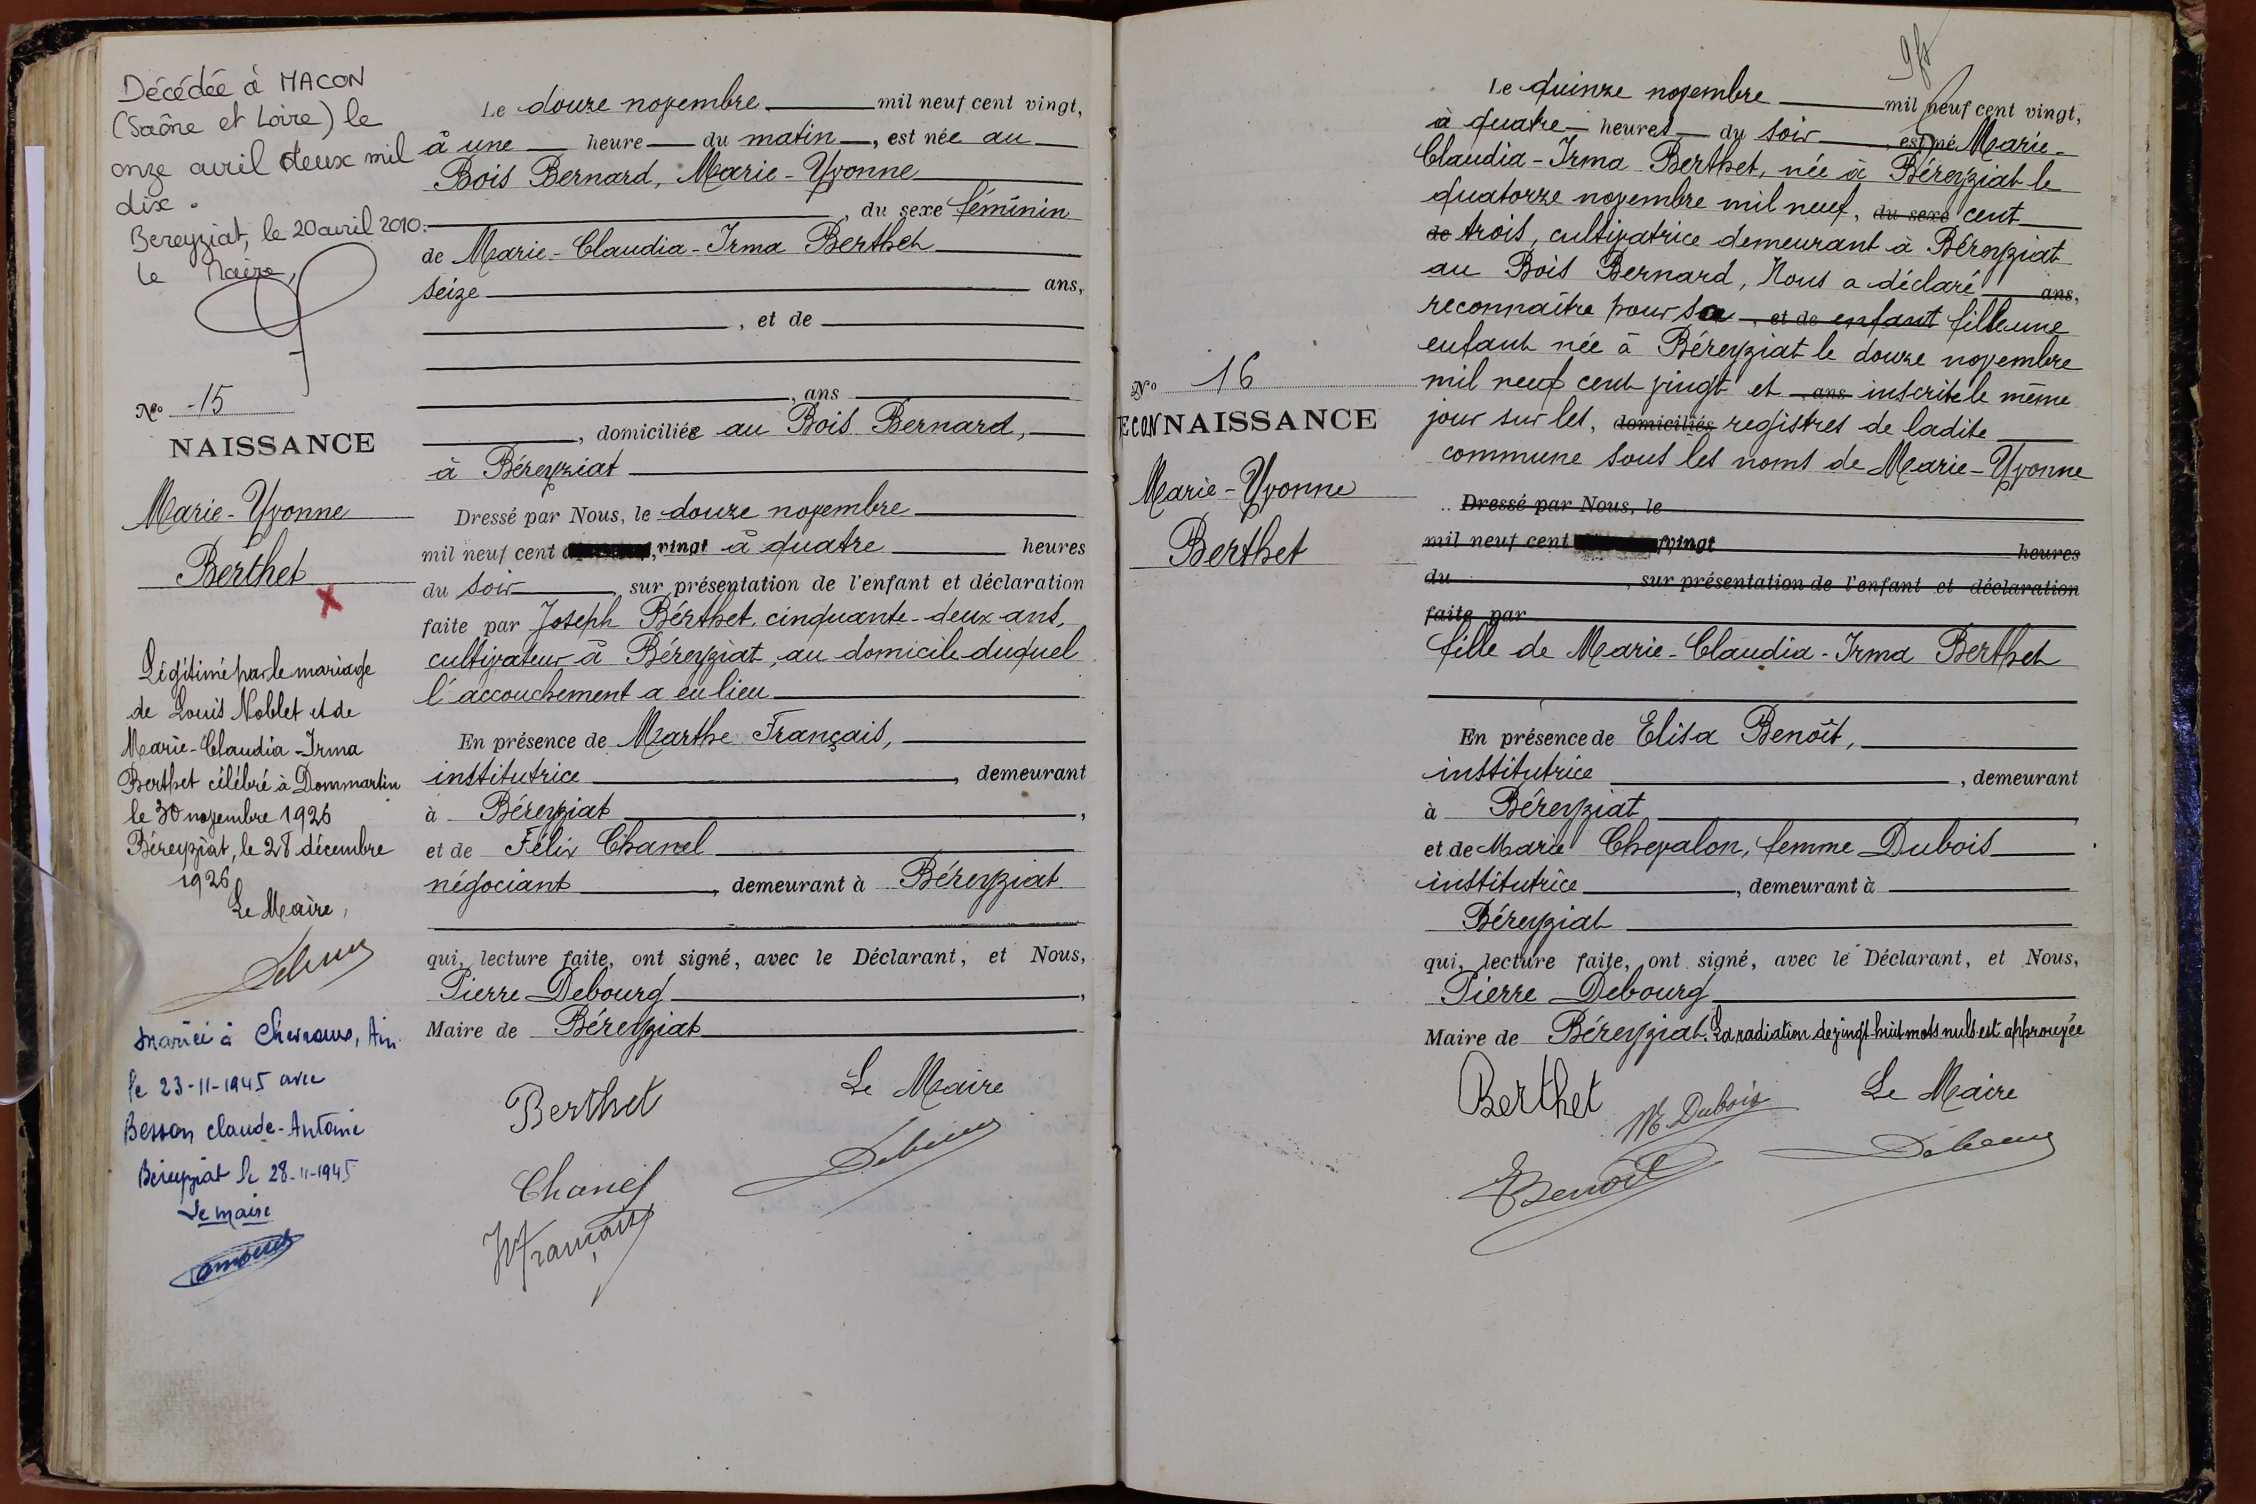 Décédée à MACON
(Saône et Loire) le
onze avril deux mil
dix.
Bereyziat, le 20 avril 2010.
le Maire,
No 15
NAISSANCE
Marie-Yvonne
Berthet
Légitimé par le mariage
de Louis Noblet et de
Marie-Claudia-Irma
Berthet célébré à Dommartin
le 30 novembre 1926
Béreyziat, le 28 décembre
1926
Le Maire,
Mariée à Chevroux, Ain
le 23-11-1945 avec
Besson Claude-Antoine
Béreyziat le 28-11-1945
Le maire
Le douze novembre mil neuf cent vingt,
à une heure du matin, est née au
Bois Bernard, Marie-Yvonne
, du sexe féminin
de Marie-Claudia-Irma Berthet
seize ans,
, et de
, ans
, domiciliée au Bois Bernard,
à Béreyziat
Dressé par Nous, le douze novembre
mil neuf cent vingt à quatre heures
du soir, sur présentation de l'enfant et déclaration
faite par Joseph Bérthet, cinquante-deux ans,
cultivateur à Béreyziat, au domicile duquel
l'accouchement a eu lieu
En présence de Marthe Français,
institutrice, demeurant
à Béreyziat,
et de Félix Chanel
négociant, demeurant à Béreyziat
qui, lecture faite, ont signé, avec le Déclarant, et Nous,
Pierre Debourg,
Maire de Béreyziat
Berthet
Le Maire
Chanel
M Français
No 16
RECONNAISSANCE
Marie-Yvonne
Berthet
Le quinze novembre mil neuf cent vingt,
à quatre heures du soir, est né Marie-
Claudia-Irma Berthet, née à Béreyziat le
quatorze novembre mil neuf, du sexe cent
de trois, cultivatrice demeurant à Béreyziat
au Bois Bernard, Nous a déclaré ans,
reconnaître pour sa, et de enfant fille une
enfant née à Béreyziat le douze novembre
mil neuf cent vingt et ans inscrite le même
jour sur les, domiciliés registres de ladite
commune sous les noms de Marie-Yvonne
Dressé par Nous, le
mil neuf cent vingt heures
du, sur présentation de l'enfant et déclaration
faite par
fille de Marie-Claudia-Irma Berthet
En présence de Elisa Benoît,
institutrice, demeurant
à Béreyziat
et de Marie Chevalon, femme Dubois
institutrice, demeurant à
Béreyziat
qui, lecture faite, ont signé, avec le Déclarant, et Nous,
Pierre Debourg
Maire de Béreyziat. La radiation de vingt huit mots nuls est approuvée
Berthet
M. Dubois
Le Maire
E Benoit